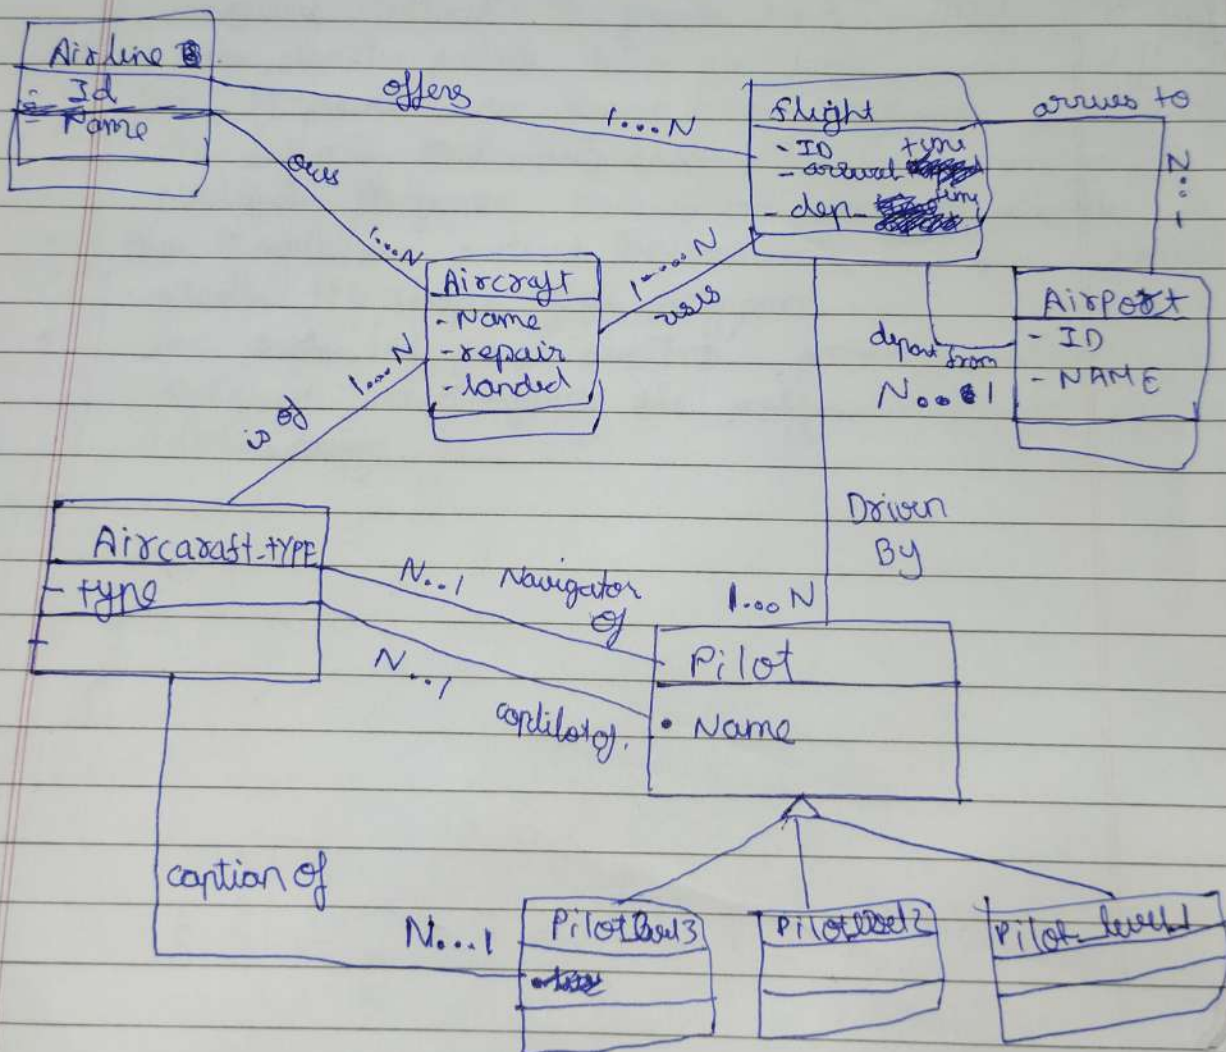 Airline
- Id
- Name
offers
1...N
flight
- ID
time
- arrival
- dep-
time
arrives to
N..1
owns
1...N
Aircraft
- Name
- repair
- landed
1....N
uses
depart from
N..1
Airport
- ID
- NAME
is of
1...N
Driven
By
1...N
Aircaraft-tYPE
- type
N..1 Navigator
of
N...1
copilot of.
Pilot
• Name
caption of
N...1
Pilotlevel3
Pilotlevel2
Pilot_level1